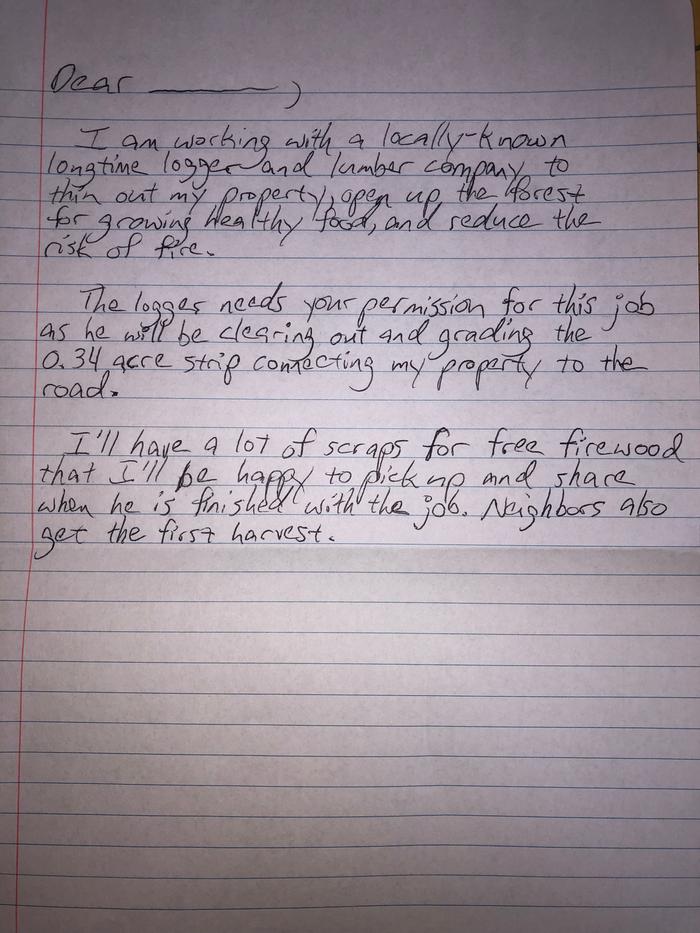 Dear ________,
I am working with a locally-known
longtime logger and lumber company to
thin out my property, open up the forest
for growing healthy food, and reduce the
risk of fire.
The logger needs your permission for this job
as he will be clearing out and grading the
0.34 acre strip connecting my property to the
road.
I'll have a lot of scraps for free firewood
that I'll be happy to pick up and share
when he is finished with the job. Neighbors also
get the first harvest.